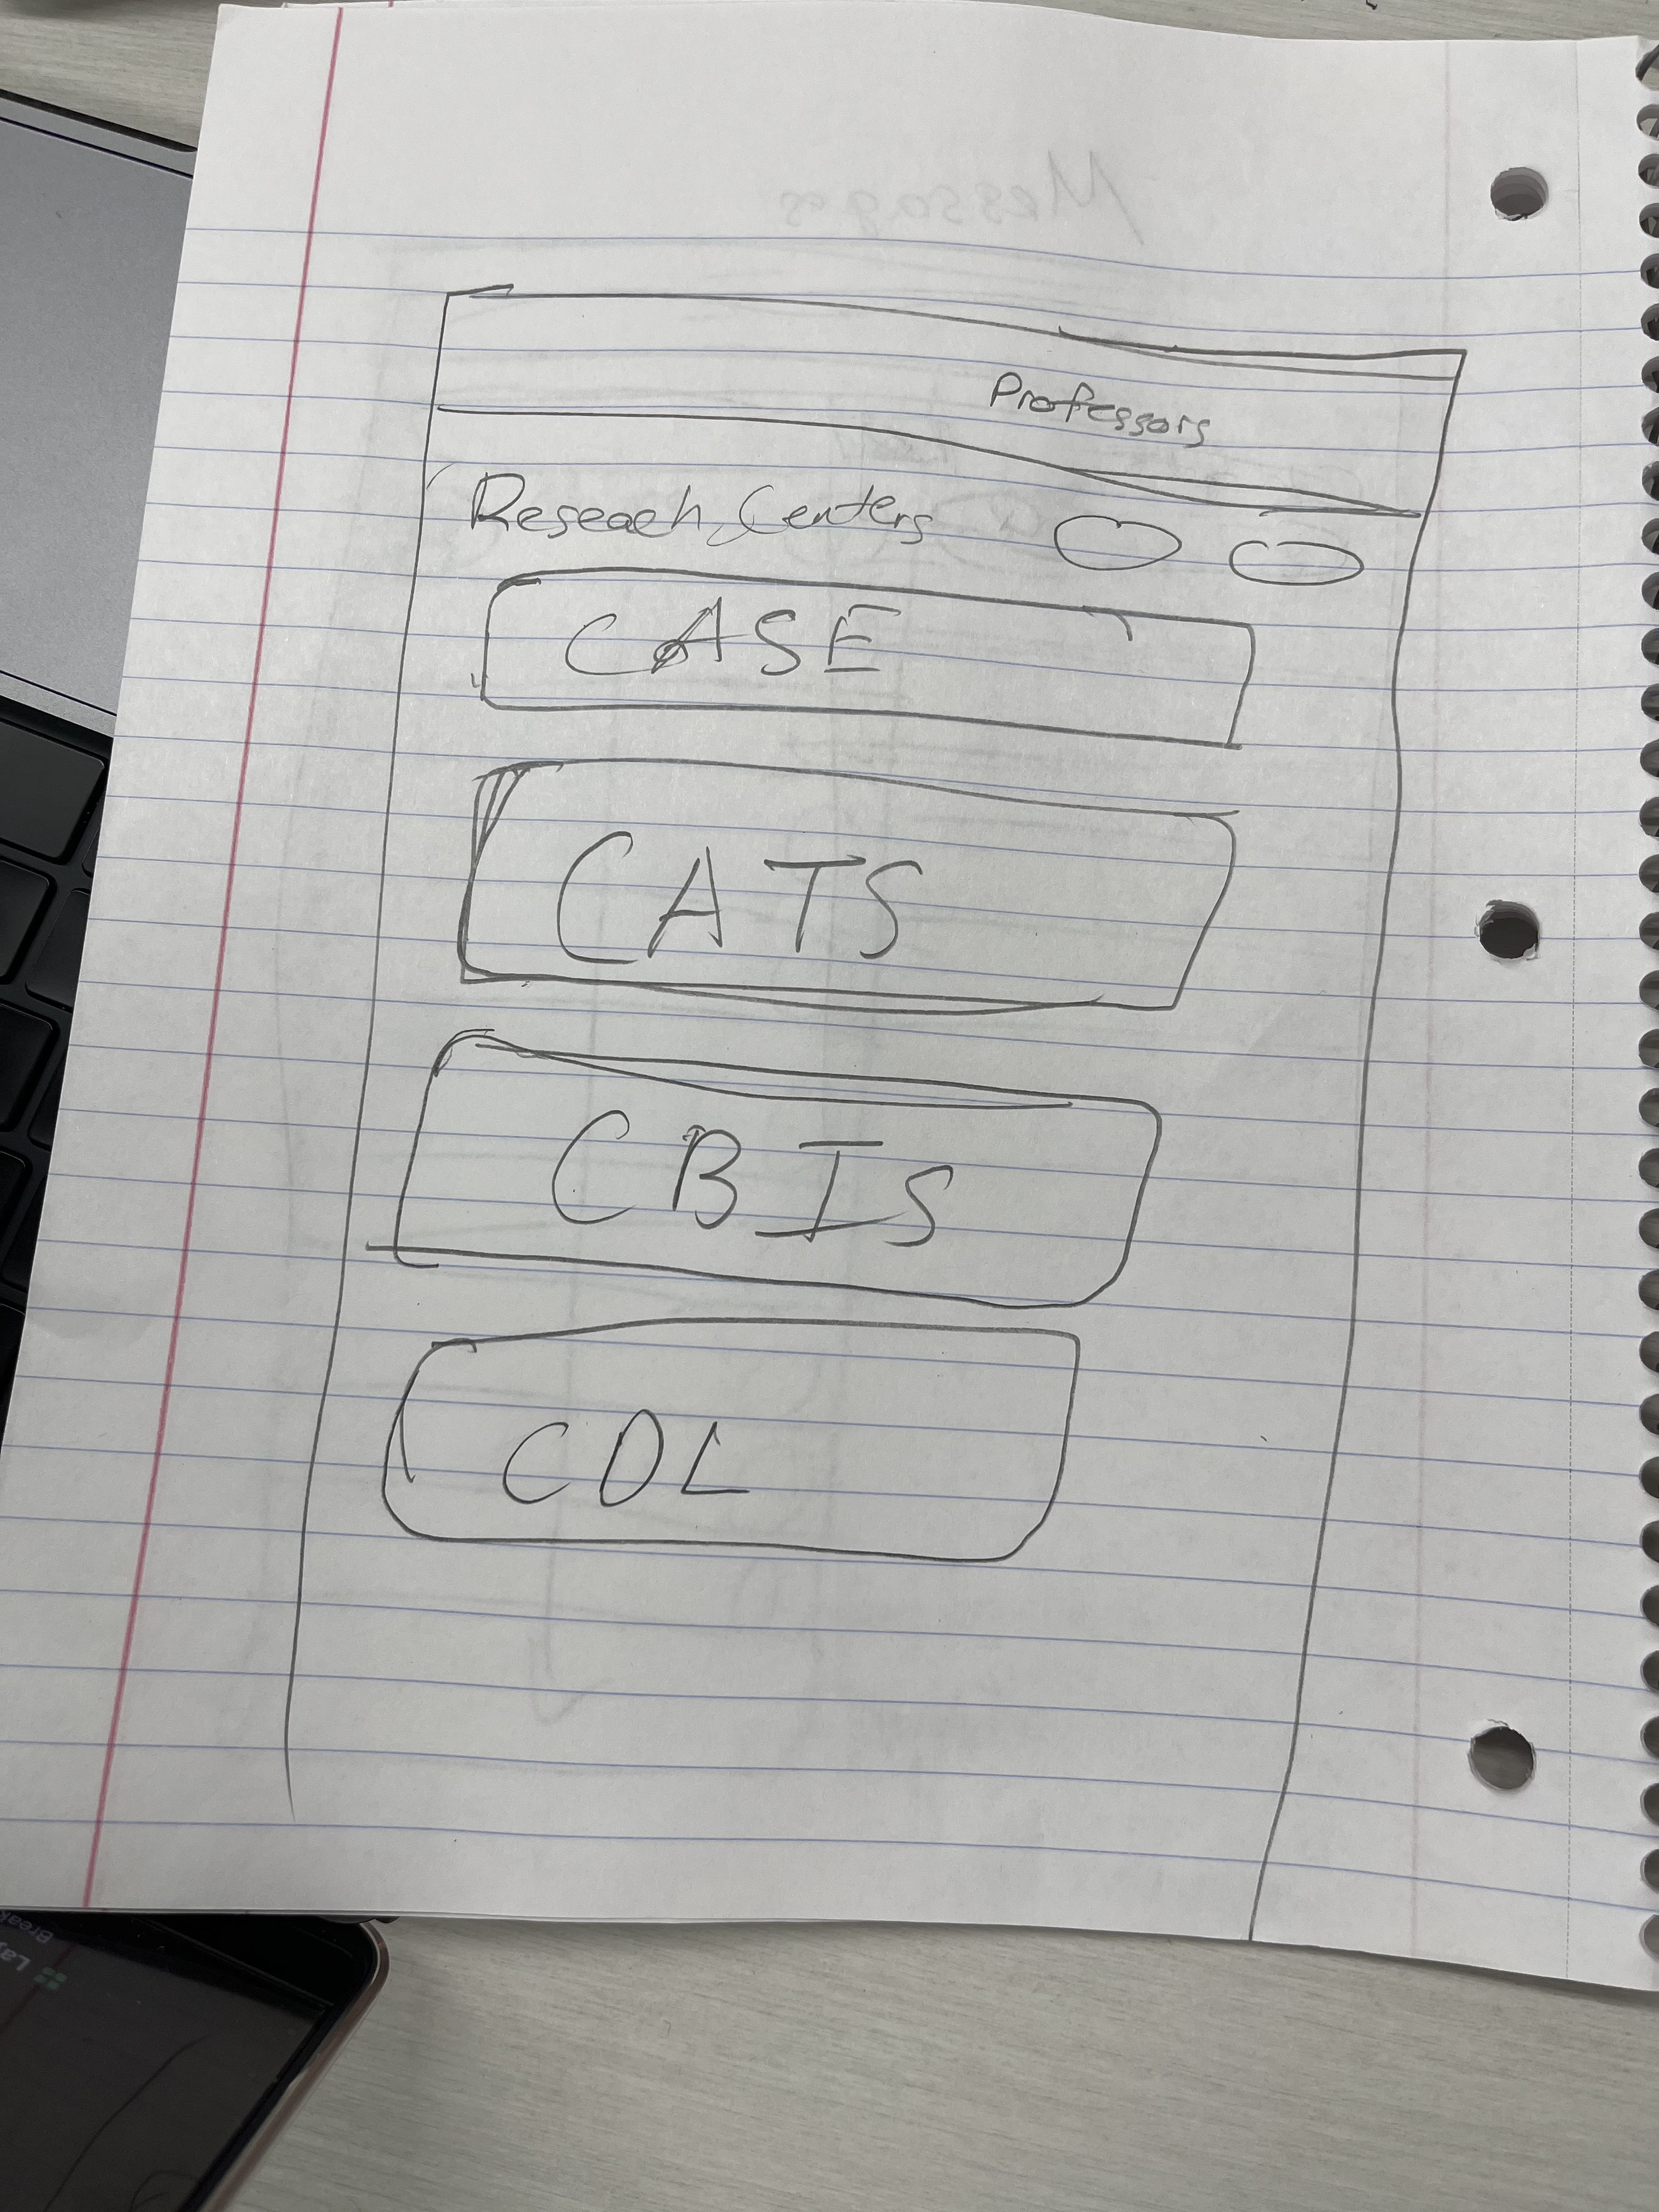 Messages
Professors
Reseach Centers
CASE
CATS
CBIS
CDL